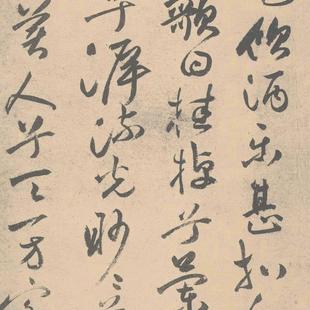 飲酒樂甚扣
歌曰桂棹兮蘭
兮泝流光眇〻
美人兮天一方客